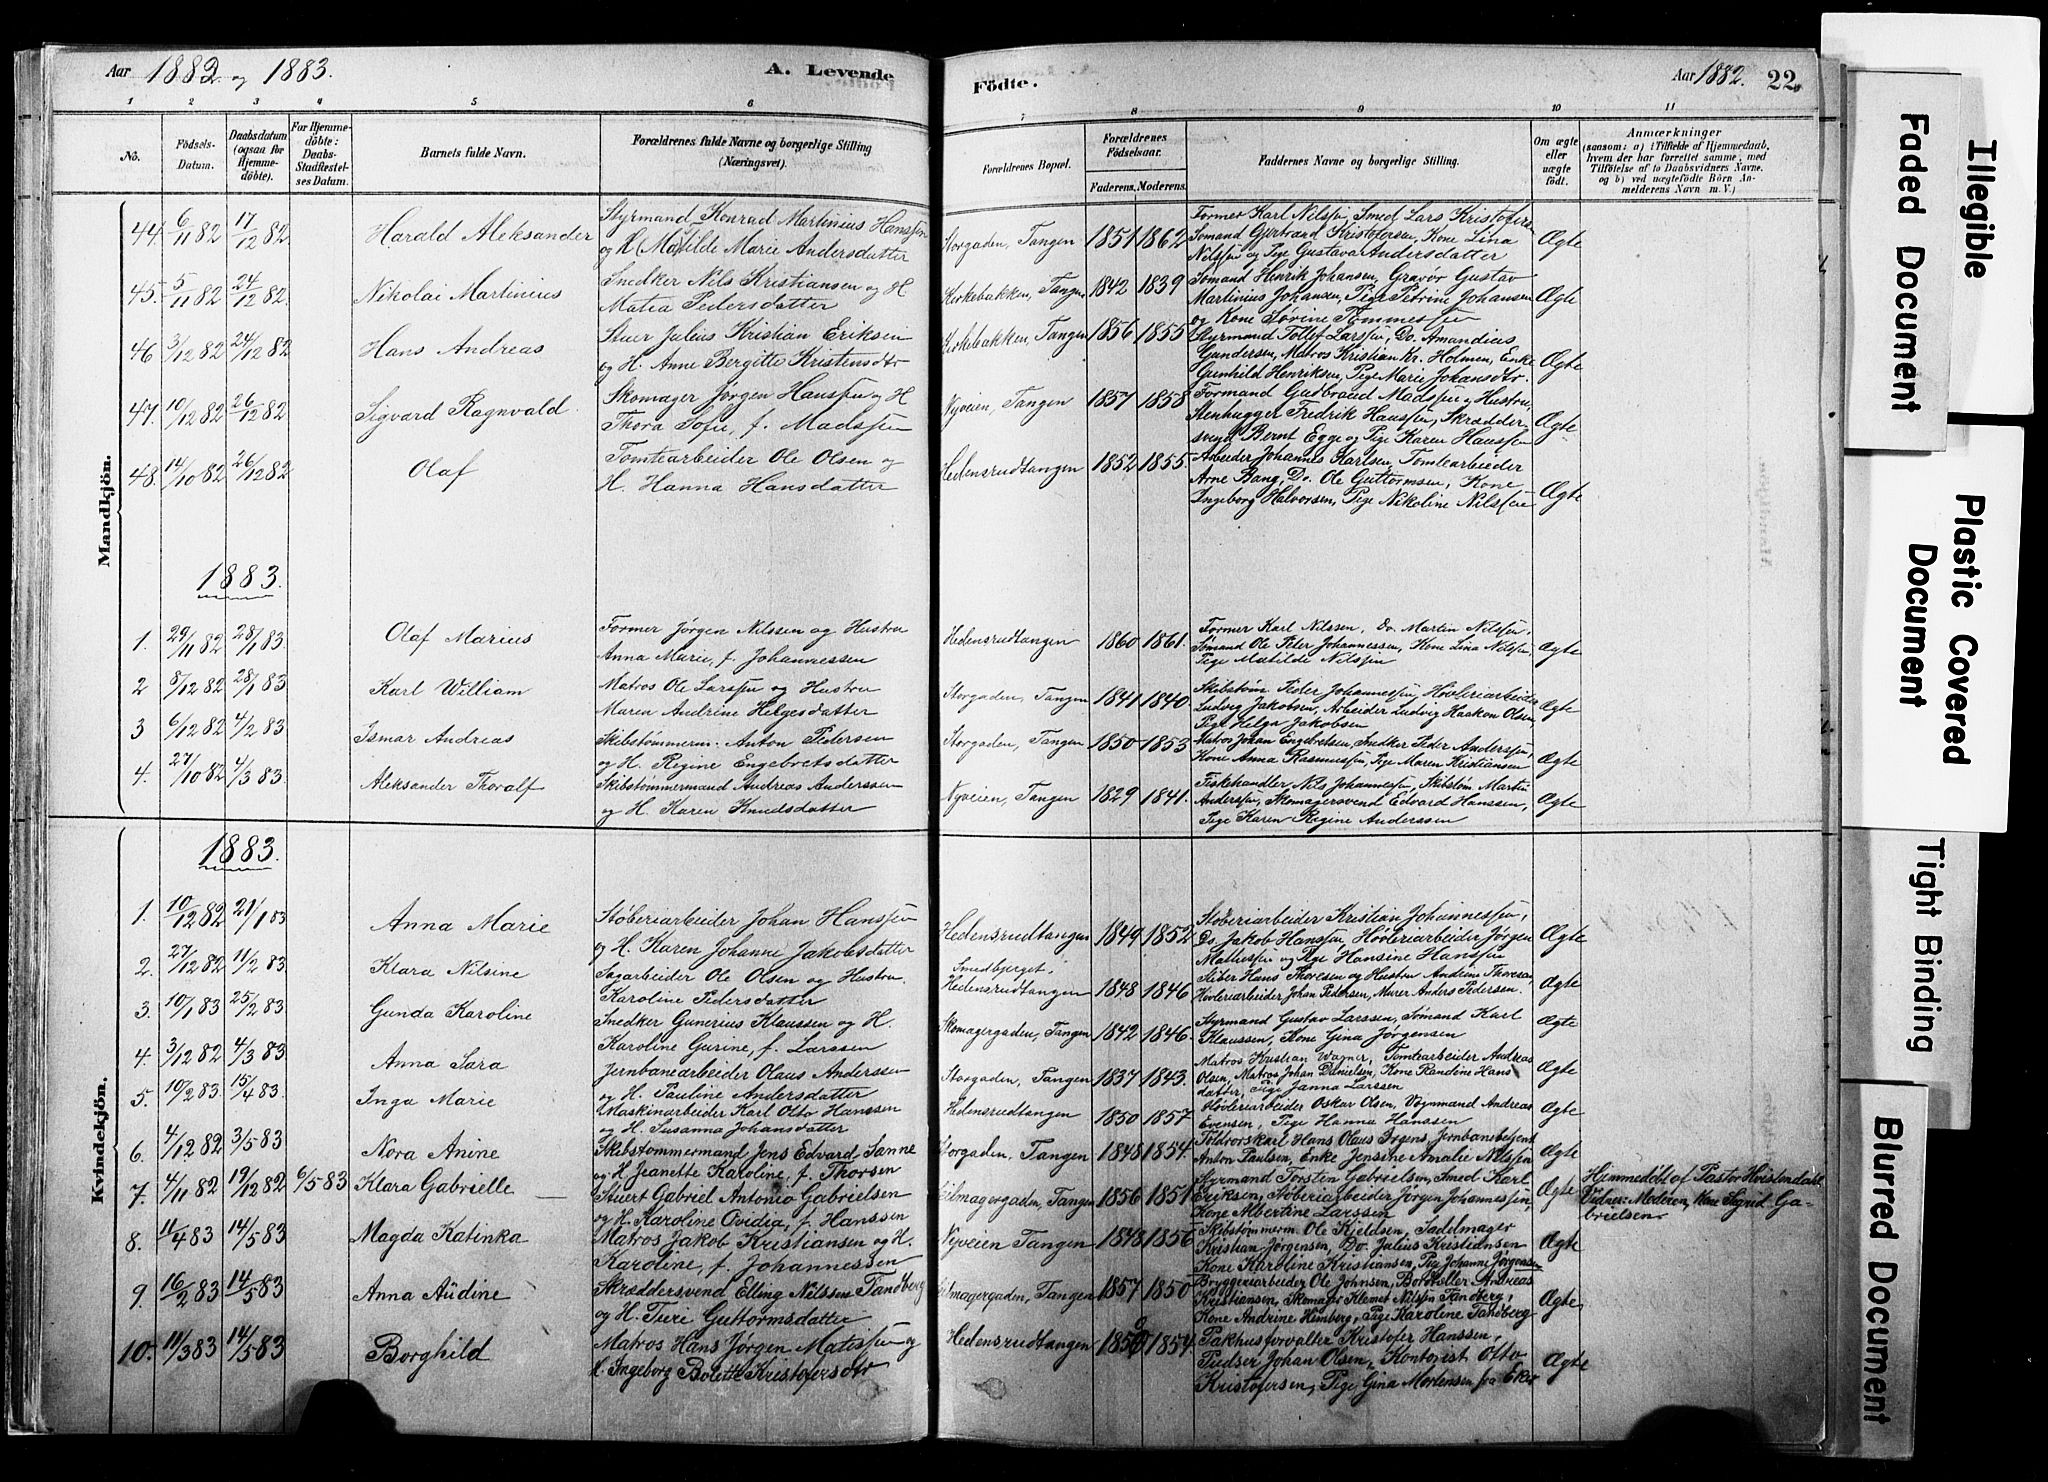 Aar 1882 og 1883.
A. Levende
Födte.
Aar 1882. 22.
1 2 3 4 5 6 7 8 9 10 11
No.
Födsels-Datum.
Daabsdatum (ogsaa for Hjemmedöbte).
For Hjemmedöbte: Daabs-Stadfæstelses Datum.
Barnets fulde Navn.
Forældrenes fulde Navne og borgerlige Stilling (Næringsvei).
Forældrenes Bopæl.
Forældrenes Födselsaar.
Faderens. Moderens.
Faddernes Navne og borgerlige Stilling.
Om ægte eller uægte födt.
Anmærkninger
(saasom: a) i Tilfælde af Hjemmedaab, hvem der har forrettet samme, med Tilföielse af to Daabsvidners Navne, og b) ved uægtefödte Börn Anmelderens Navn m. V.)
Mandkjön.
44. 6/11 82 17/12 82 Harald Aleksander
Styrmand Konrad Martinius Hanssen
og H. Matilde Marie Andersdatter
Storgaden, Tangen 1851 1862
Former Karl Nilssen, Smed Lars Kristofersen
Sømand Gjertrand Kristofersen, Kone Lina
Nilssen og Pige Gustava Andersdatter
Ægte
45. 5/11 82 24/12 82. Nikolai Martinius
Snedker Nils Kristiansen og H.
Matea Pedersdatter
Kirkebakken, Tangen 1842 1839
Sømand Henrik Johansen, Gravør Gustav
Martinius Johansen, Pige Petrine Johansen
og Kone Sørine Tommessen
Ægte
46 3/12 82 24/12 82 Hans Andreas
Stuer Julius Kristian Eriksen
og H. Anne Bergitte Kristensdtr
Kirkebakken, Tangen 1856 1855
Styrmand Tollef Larssen, Do. Amandius
Gundersen, Matros Kristian Kr. Holmen, Enke
Gunhild Henriksen, Pige Marie Johansdtr.
Ægte
47. 10/12 82 26/12 82 Sigvard Ragnvald.
Skomager Jørgen Hanssen og H
Thora Sofie, f. Madssen
Nyveien, Tangen 1857 1858
Formand Gudbrand Madssen og Hustru,
Stenhugger Fredrik Hanssen, Skrædder-
svend Bernt Egge og Pige Karen Hanssen
Ægte
48. 14/10 82 26/12 82 Olaf
Tomtearbeider Ole Olsen og
H. Hanna Hansdatter
Hedensrudtangen 1852 1855.
Arbeider Johannes Karlsen, Tomtearbeider
Arne Bang, Do. Ole Guttormsen, Kone
Ingeborg Halvorsen, Pige Nikoline Nilssen
Ægte
1883.
1. 29/11 82 28/1 83 Olaf Marius
Former Jørgen Nilssen og Hustru
Anna Marie, f. Johannessen
Hedensrudtangen 1860 1861.
Former Karl Nilssen, Do. Martin Nilssen,
Sømand Ole Peter Johannessen, Kone Lina Nilssen,
Pige Matilde Nilssen
Ægte
2 8/12 82 28/1 83 Karl William
Matros Ole Larssen og Hustru
Maren Andrine Helgesdatter
Storgaden, Tangen 1841 1840.
Skibstøm. Peder Johannessen, Høvleriarbeider
Ludvig Jakobsen, Arbeider Ludvig Haakon Olsen,
Pige Helga Jakobsen
Ægte
3 6/12 82 4/2 83 Ismar Andreas
Skibstømmerm. Anton Pedersen
og H. Regine Engebretsdatter
Storgaden, Tangen 1850 1853
Matros Johan Engebretsen, Snedker Peder Anderssen,
Kone Anna Rasmussen, Pige Maren Kristiansen
Ægte
4. 27/10 82 4/3 83. Aleksander Thoralf
Skibstømmermand Andreas Anderssen
og H. Karen Knudsdatter
Nyveien, Tangen 1829 1841.
Fiskehandler Nils Johannessen, Skibstøm. Martin
Anderssen, Skomagersvend Edvard Hanssen,
Pige Karen Regine Anderssen
Ægte
Kvindekjön.
1883.
1. 10/12 82 21/1 83 Anna Marie
Støberiarbeider Johan Hanssen
og H. Karen Johanne Jakobsdatter
Hedensrudtangen 1849 1852
Støberiarbeider Kristian Johannessen,
Do. Jakob Hanssen, Høvleriarbeider Jørgen
Mathessen og Pige Hansine Hanssen
Ægte
2. 27/12 82 11/2 83. Klara Nilsine
Sagarbeider Ole Olsen og Hustru
Karoline Pedersdatter
Smedbjerget,
Hedensrudtangen 1848 1846
Støber Hans Thoresen og Hustru Andrine Thoresen,
Høvleriarbeider Johan Pedersen, Murer Anders Pedersen.
Ægte
3. 10/1 83 25/2 83 Gunda Karoline
Snedker Gunerius Klaussen og H.
Karoline Gurine, f. Larssen
Skomagergaden, Tangen 1842 1846.
Styrmand Gustav Larssen, Sømand Karl
Klaussen, Kone Gina Jørgensen
Ægte
4. 3/12 82 4/3 83 Anna Sara
Jernbanearbeider Olaus Anderssen
og H. Pauline Andersdatter
Storgaden, Tangen 1837 1843.
Matros Kristian Wagner, Tomtearbeider Andreas
Olsen, Matros Johan Danielsen, Kone Randine Hans
datter, Pige Janna Larssen
Ægte
5. 10/2 83. 15/4 83. Inga Marie
Maskinarbeider Karl Otto Hanssen
og H. Susanna Johansdatter
Hedensrudtangen 1850 1857
Høvleriarbeider Oskar Olsen, Vognmand Andreas
Evensen, Pige Hanna Hanssen
Ægte
6. 4/12 82 3/5 83 Nora Anine
Skibstømmermand Jens Edvard Sanne
og H. Jeanette Karoline, f. Thorsen
Storgaden, Tangen 1848 1854.
Toldvorskarl Hans Olaus Ørgens, Jernbanebetjent
Anton Paulsen, Enke Jensine Amalie Nilssen
Ægte
7. 4/11 82 19/12 82 6/5 83 Klara Gabrielle
Stuert Gabriel Antonio Gabrielsen
og H. Karoline Ovidia, f. Hanssen
Feilmagergaden, Tangen 1856 1851
Styrmand Torsten Gabrielsen, Smed Karl
Eriksen, Støberiarbeider Jørgen Johannessen,
Kone Albertine Larssen
Ægte
Hjemmedöbt af Pastor Kristendahl
Vidner: Moderen, Kone Sigrid Ga-
brielsen.
8. 11/4 83 14/5 83 Magda Katinka
Matros Jakob Kristiansen og H.
Karoline, f. Johannessen
Nyveien Tangen 1848 1856
Skibstømmerm. Ole Kjeldsen, Sadelmager
Kristian Jørgensen, Do. Julius Kristiansen
Kone Karoline Kristiansen, Pige Johanne Jørgensen
Ægte
9. 16/2 83 14/5 83 Anna Audine
Skræddersvend Elling Nilssen Tandberg
og H. Turi Guttormsdatter
Feilmagergaden, Tangen 1857 1850
Bryggeriarbeider Ole Johnsen, Andreas
Kristiansen, Skomager Klemet Nilssen Tandberg,
Kone Andrine Heimberg, Pige Karoline Tandberg
Ægte
10. 11/3 83 14/5 83 Borghild
Matros Hans Jørgen Matissen og
H. Ingeborg Bolette Kristofersdtr
Hedensrudtangen 1850 1854.
Pakhusforvalter Kristofer Hanssen,
Pudser Johan Olsen, Kontorist Otto
Kristofersen, Pige Gina Mortensen fra Eker
Ægte
Illegible
Faded Document
Plastic Covered Document
Tight Binding
Blurred Document